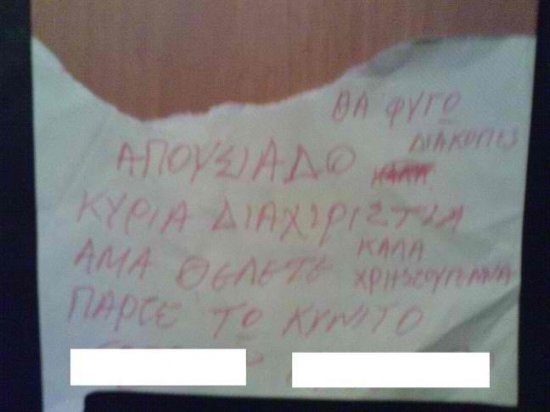 ΘΑ ΦΥΓΟ
ΔΙΑΚΟΠΕΣ
ΑΠΟΥΣΙΑΔΟ
ΚΥΡΙΑ ΔΙΑΧΙΡΙΣΤΙΑ
ΑΜΑ ΘΕΛΕΤΕ
ΚΑΛΑ
ΧΡΗΣΤΟΥΓΕΝΝΑ
ΠΑΡΤΕ ΤΟ ΚΥΝΙΤΟ